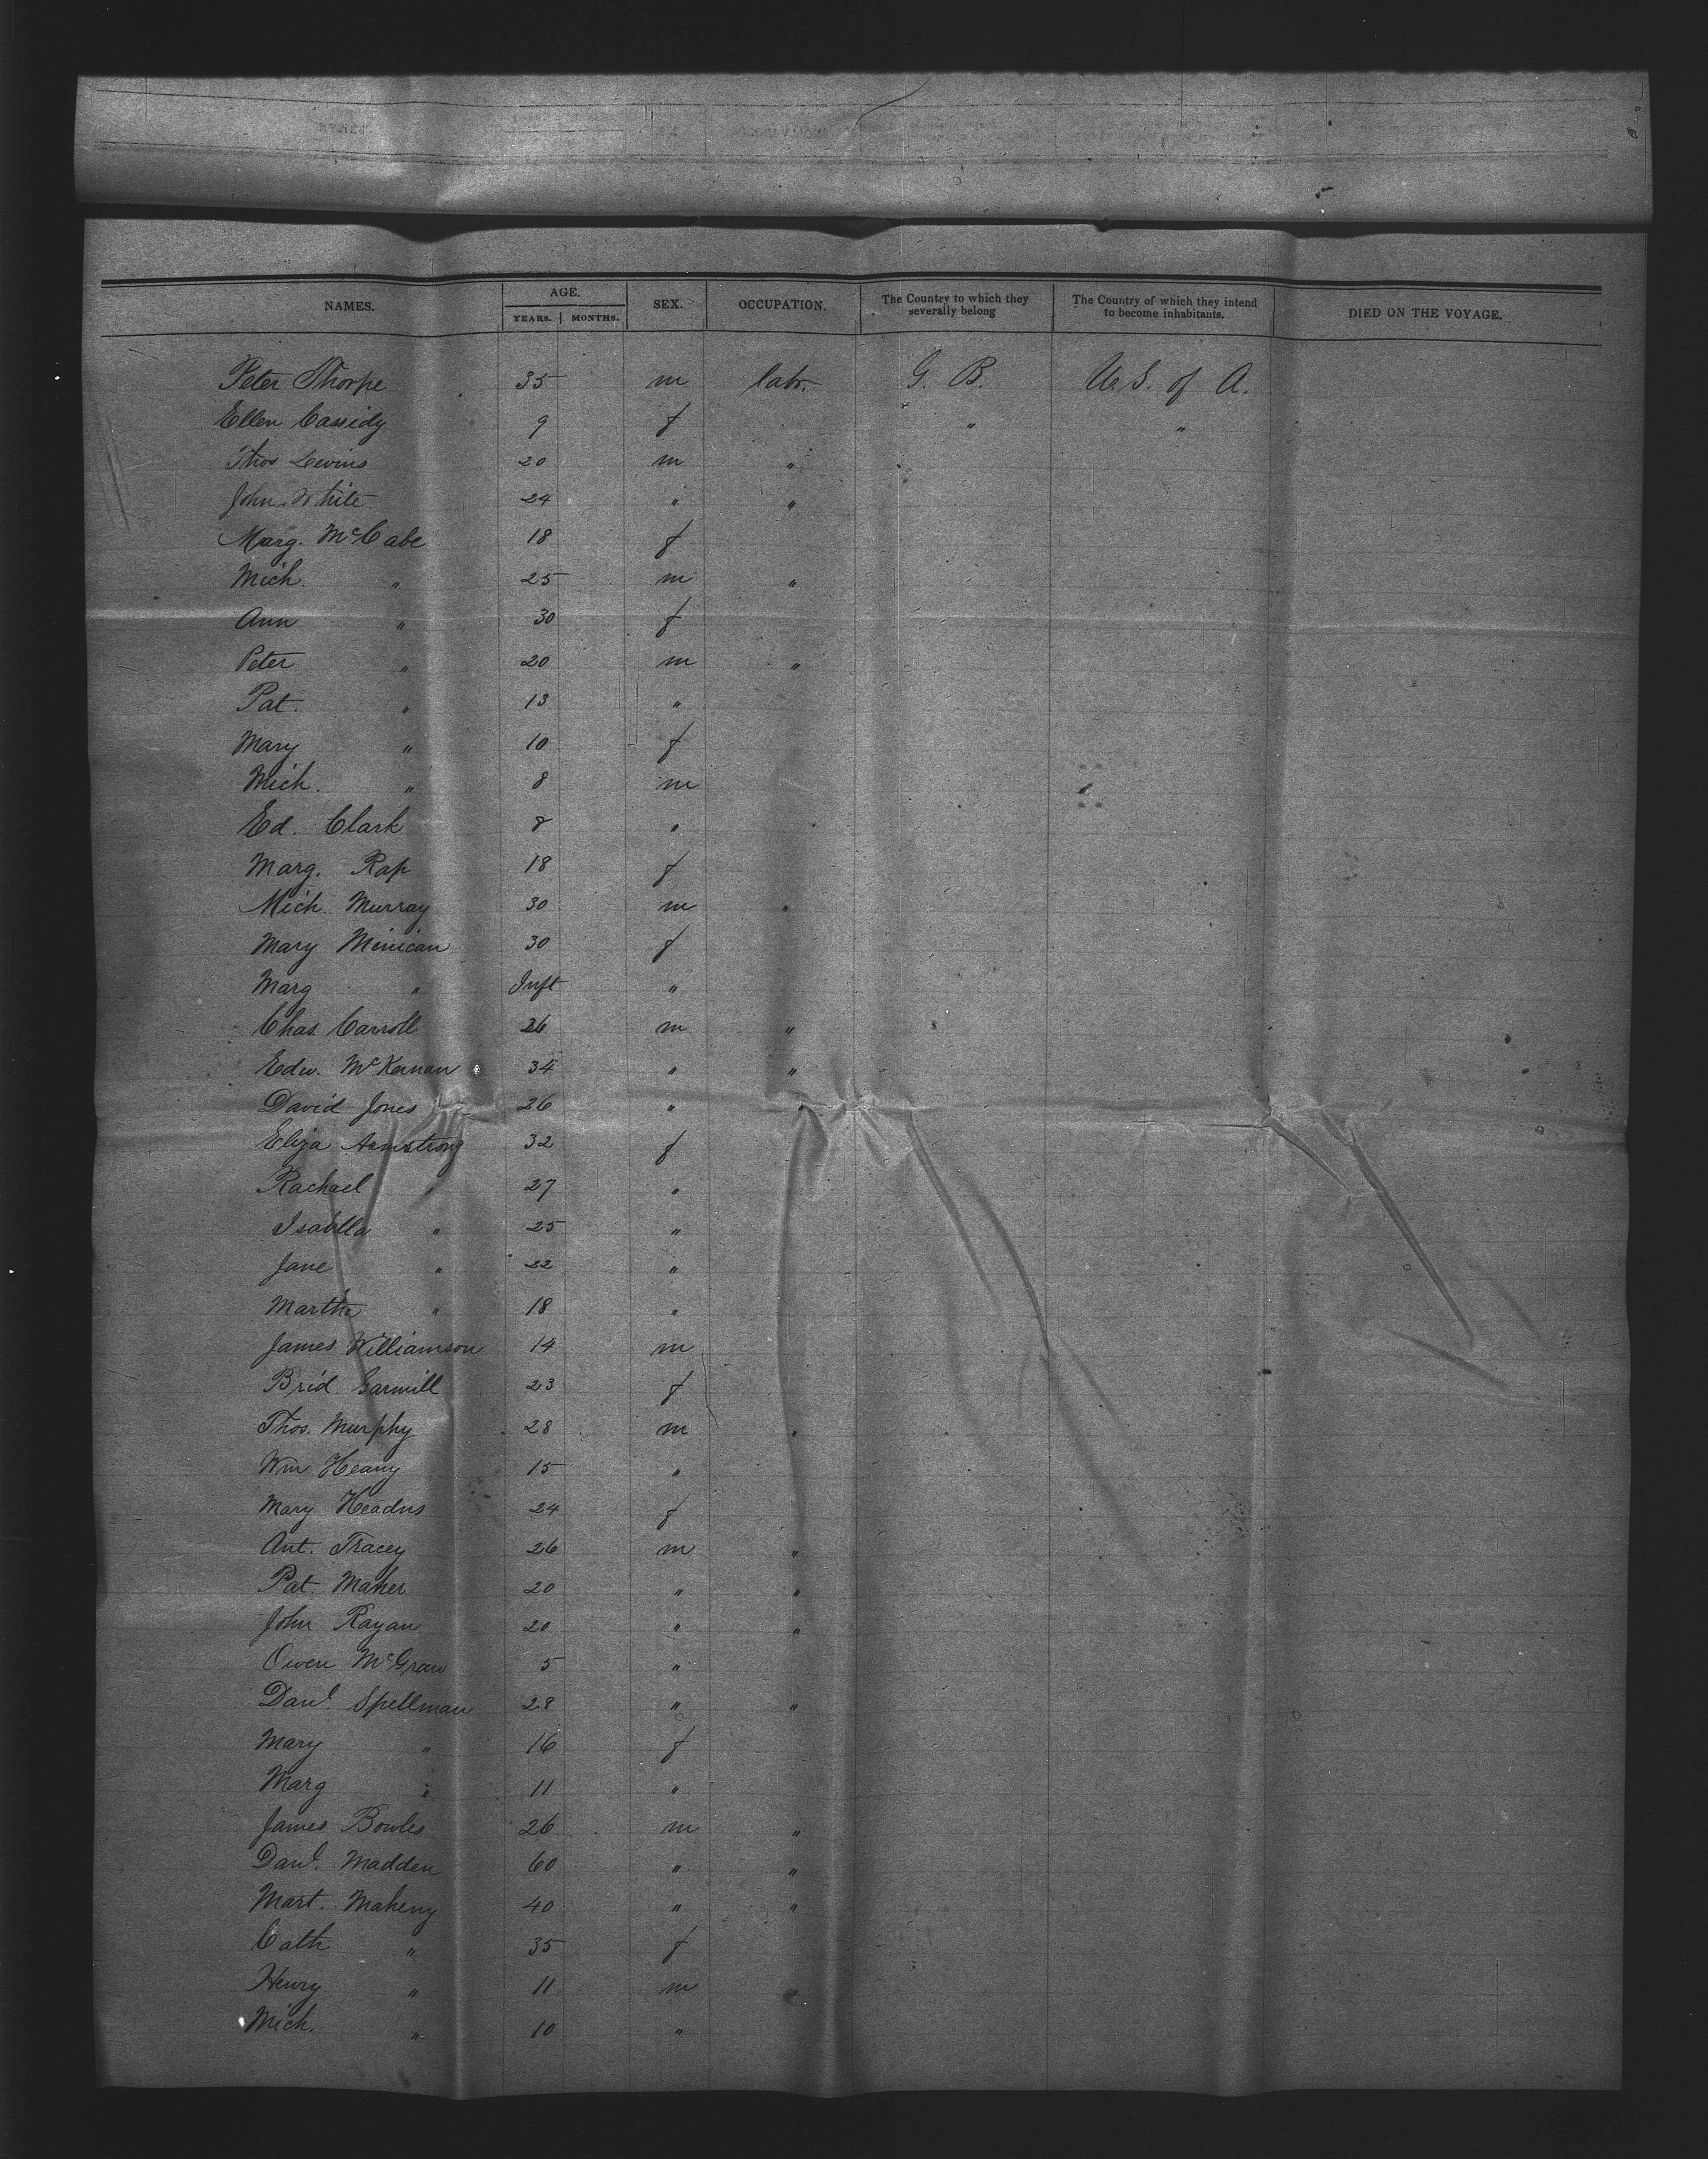 NAMES. AGE. YEARS. MONTHS. SEX. OCCUPATION. The Country to which they severally belong The Country of which they intend to become inhabitants. DIED ON THE VOYAGE.
Peter Thorpe 35 m labr. G. B. U.S. of A.
Ellen Cassidy 9 f " "
Thos Levins 20 m "
John White 24 " "
Marg. McCabe 18 f
Mich. " 25 m "
Ann " 30 f
Peter " 20 m "
Pat. " 13 "
Mary " 10 f
Mich. " 8 m
Ed. Clark 8 "
Marg. Rap 18 f
Mich. Murray 30 m "
Mary Minican 30 f
Marg " Inft "
Chas. Carroll 26 m "
Edw. McKernan 34 " "
David Jones 26 " "
Eliza Armstrong 32 f
Rachael " 27 "
Isabella " 25 "
Jane " 22 "
Martha " 18 "
James Williamson 14 m
Brid. 23 f
Thos. Murphy 28 m "
Wm Heany 15 "
Mary 24 f
Ant. Tracey 26 m "
Pat. Maher 20 " "
John Rayan 20 " "
Owen McGraw 5 "
Danl. Spellman 28 " "
Mary " 16 f
Marg " 11 "
James Bowles 26 m "
Danl. Madden 60 " "
Mart. Maheny 40 " "
Cath " 35 f
Henry " 11 m
Mich. " 10 "